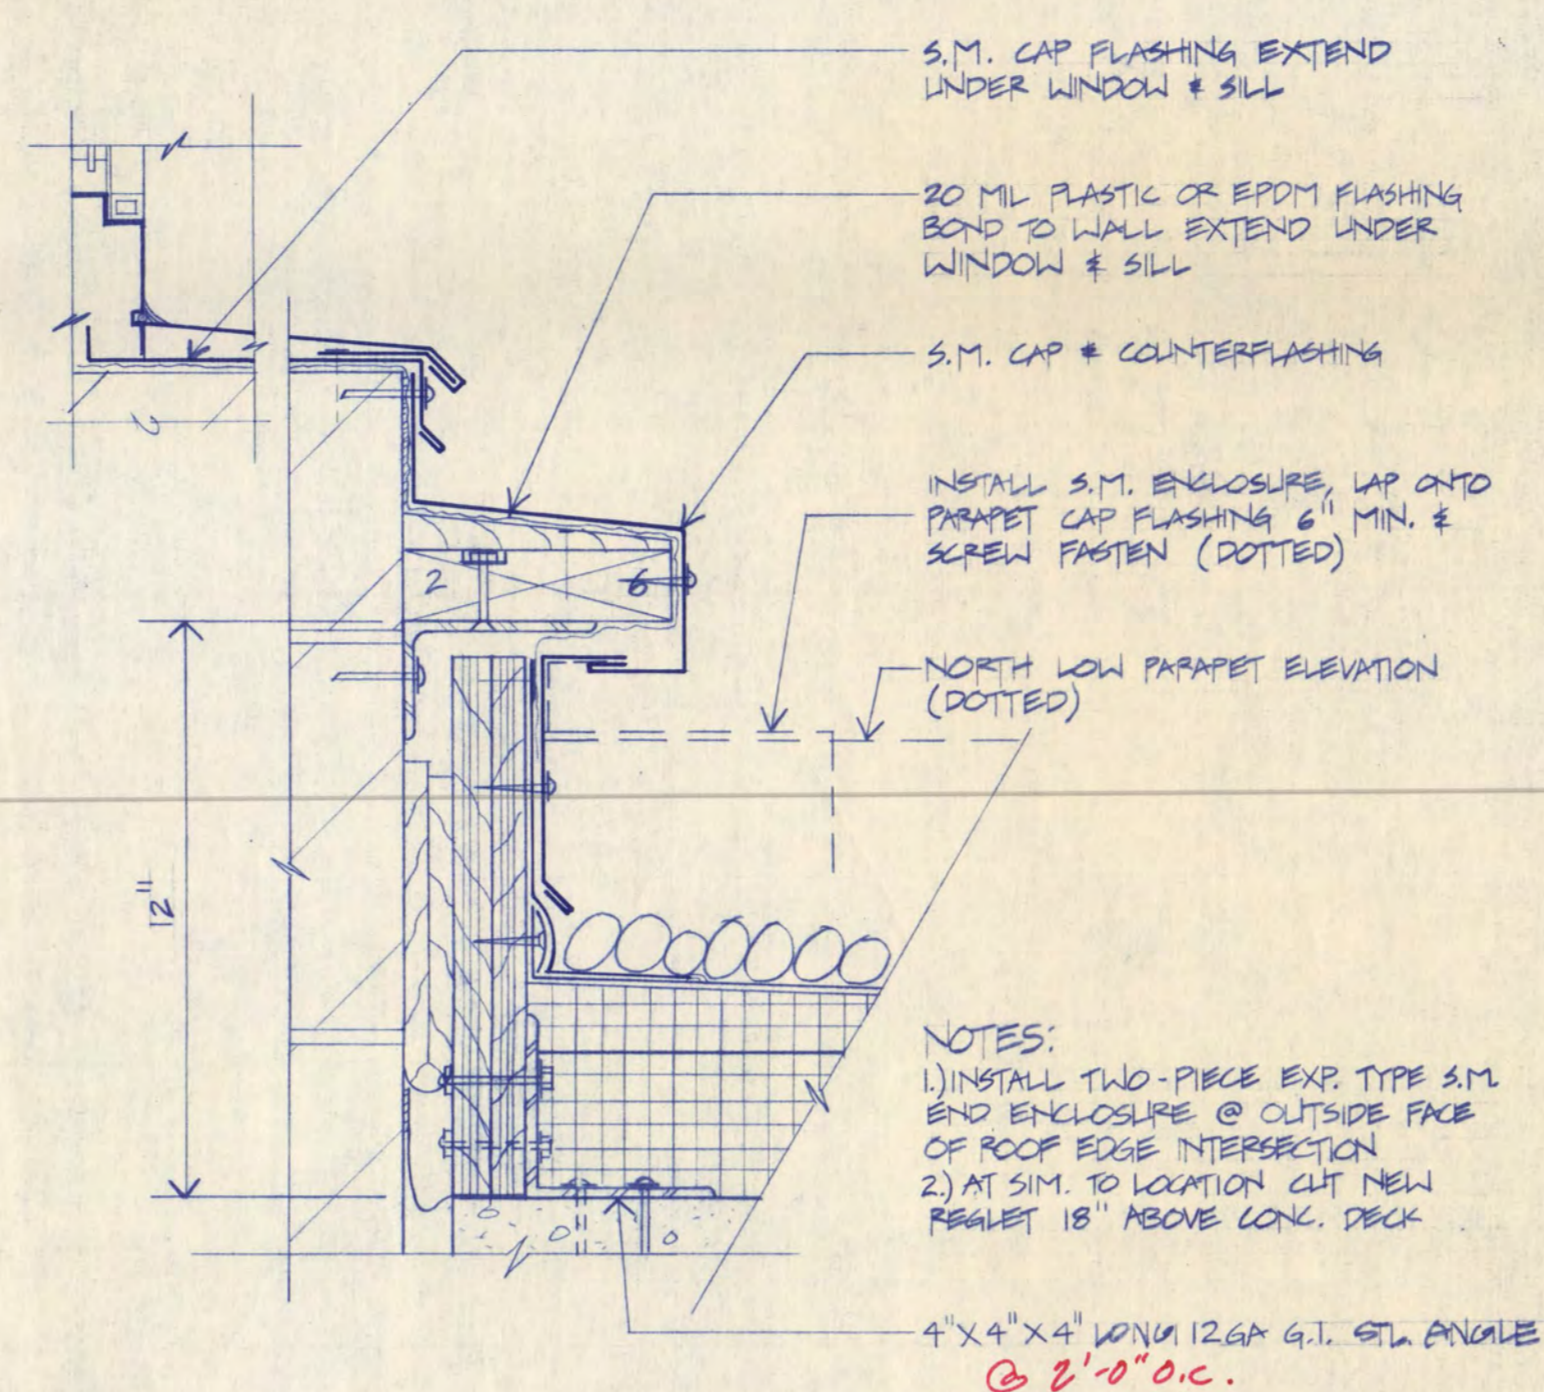 S.M. CAP FLASHING EXTEND
UNDER WINDOW & SILL
20 MIL PLASTIC OR EPDM FLASHING
BOND TO WALL EXTEND UNDER
WINDOW & SILL
S.M. CAP & COUNTERFLASHING
INSTALL S.M. ENCLOSURE, LAP ONTO
PARAPET CAP FLASHING 6" MIN. &
SCREW FASTEN (DOTTED)
2 6
NORTH LOW PARAPET ELEVATION
(DOTTED)
12"
NOTES:
1.) INSTALL TWO-PIECE EXP. TYPE S.M.
END ENCLOSURE @ OUTSIDE FACE
OF ROOF EDGE INTERSECTION
2.) AT SIM. TO LOCATION CUT NEW
REGLET 18" ABOVE CONC. DECK
4"X4"X4" LONG 12GA G.I. STL. ANGLE
@ 2'-0" O.C.